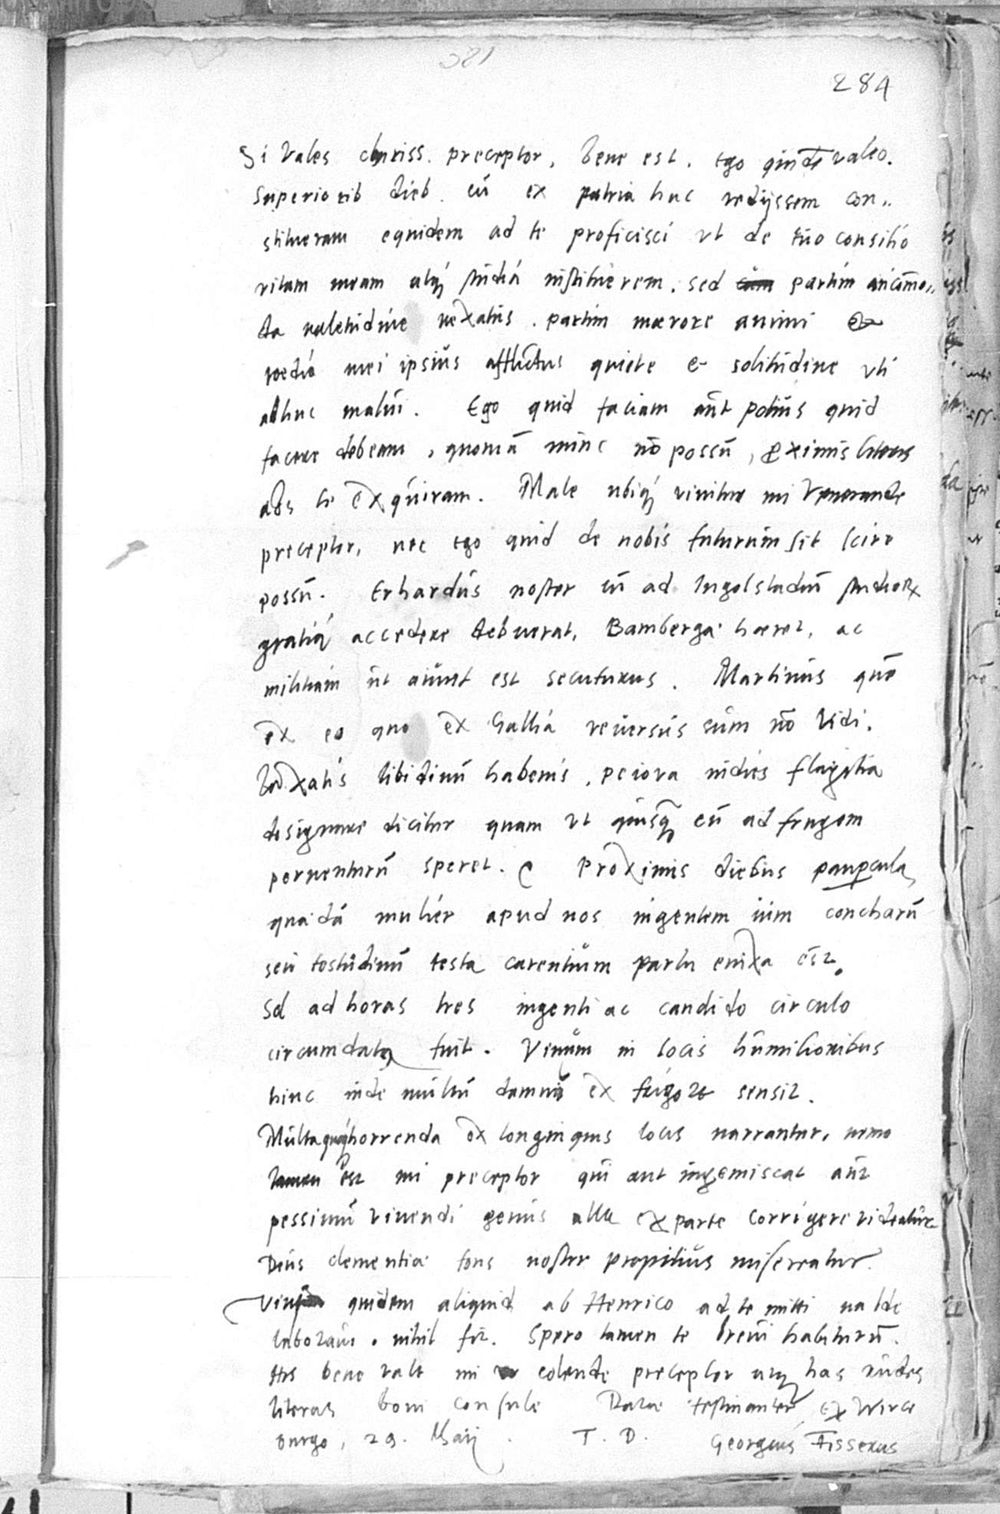 381
284
Si Vales chariss. preceptor, bene est. ego quidē valeo.
Superiorib dieb. cū ex patria huc redijssem con,,
stitueram equidem ad te proficisci vt de tuo consilio
vitam meam atq́ȝ studiá instituerem. sed partim incōmo,,
da valetudine vexatus. partim mœrore animi &
tœdio mei ipsius afflictus quiete & solitudine vti
adhuc malui. Ego quid faciam aut potius quid
facere debeam, quoniā nunc nō possū, ꝓximis literis
abs te exquiram. Male ubiqȝ vivitur mi Venerande
preceptor, nec ego quid de nobis futurum sit scire
possū. Erhardus noster cū ad Ingolstadiū studioꝝ
gratia accedere debuerat, Bambergæ hæret, ac
militiam ut aiunt est secuturus. Martinus quē
ex eo quo ex Gallia reversus sum nō Vidi.
laxatis libidinū habenis, peiora indies flagitia
designare dicitur quam vt quisqȝ eū ad frugem
peruenturū speret. Proximis diebus paupcula
quædā mulier apud nos ingentem vim concharū
seu testudinū testa carentium partu enixa est.
Sol ad horas tres ingenti ac candido circulo
circumdatꝰ fuit. Vinum in locis humilioribus
hinc inde multū damnū ex frigore sensit.
Multa quoqȝ horrenda ex longinquis locis narrantur, nemo
tamen est mi preceptor qui aut ingemiscat aut
pessimū vivendi genus alla ex parte corrigere videatur.
Deus clementiæ fons noster propitius misereatur.
Vinum quidem aliquid ab Henrico ad te mitti valde
laboraui. nihil fit. Spero tamen te brevi habiturū.
His bene vale mi colende preceptor atqȝ has rudes
literas boni consule Datæ festinanter, ex Wirce
burgo, 29. Maij. T. D. Georgius Fisserus